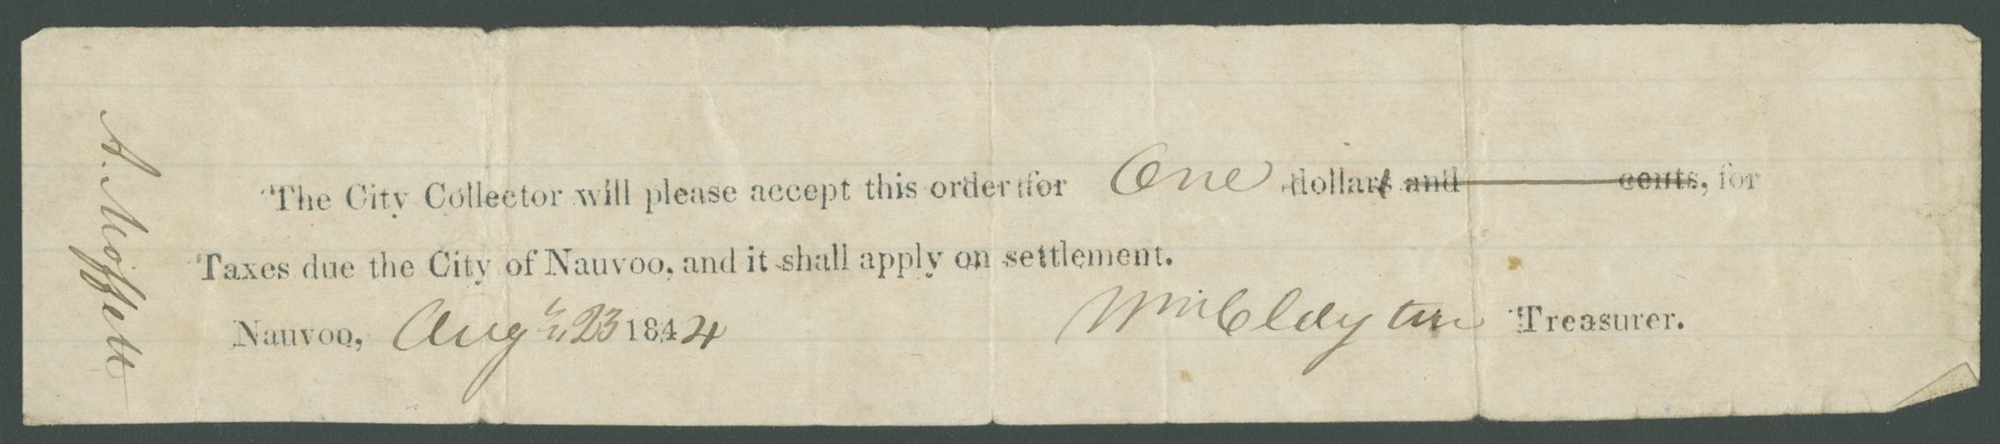 The City Collector will please accept this order for One dollars and cents, for
Taxes due the City of Nauvoo, and it shall apply on settlement.
Nauvoo, Augt 23 1844 Wm Clayton Treasurer.
A. Moffett